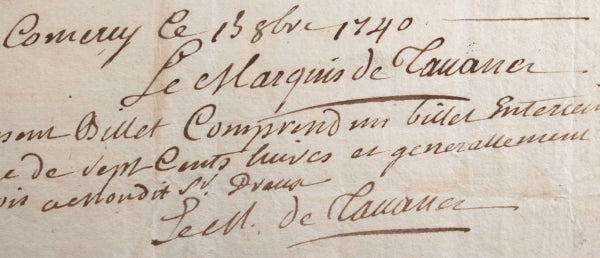 Comercy Ce 13 8bre 1740
Le Marquis de Tauanes
sent Billet Comprend un billet Enterieu
e de sept Cents livres et generallement
ois a mondit Sr. Draux
Le M. de Tauanes